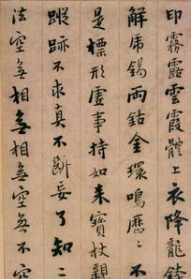 印霧露雲霞體上衣降龍鉢
解虎錫兩鈷金環鳴歷〻不
是標形虛事持如來寶杖親
蹤跡不求真不斷妄了知二
法空無相無相無空無不空